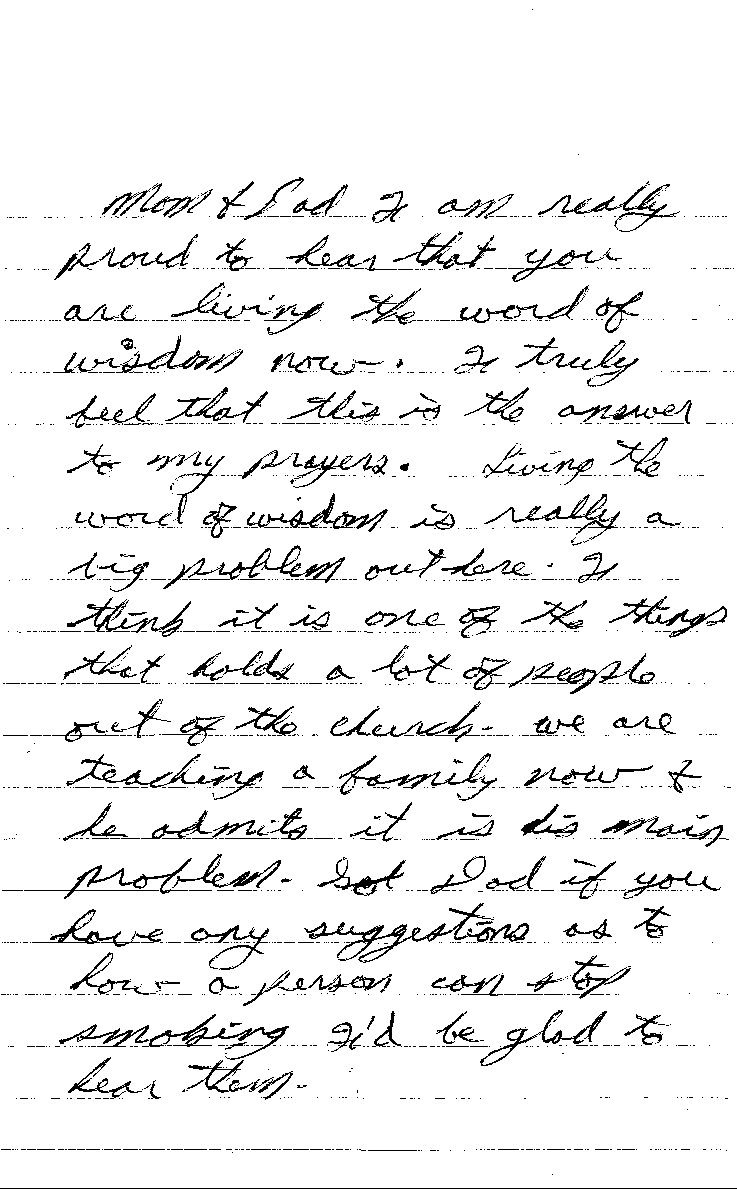 Mom & Dad I am really
proud to hear that you
are living the word of
wisdom now. I truly
feel that this is the answer
to my prayers. Living the
word of wisdom is really a
big problem out here. I
think it is one of the things
that holds a lot of people
out of the church. we are
teaching a family now &
he admits it is his main
problem. Dad if you
have any suggestions as to
how a person can stop
smoking I'd be glad to
hear them.